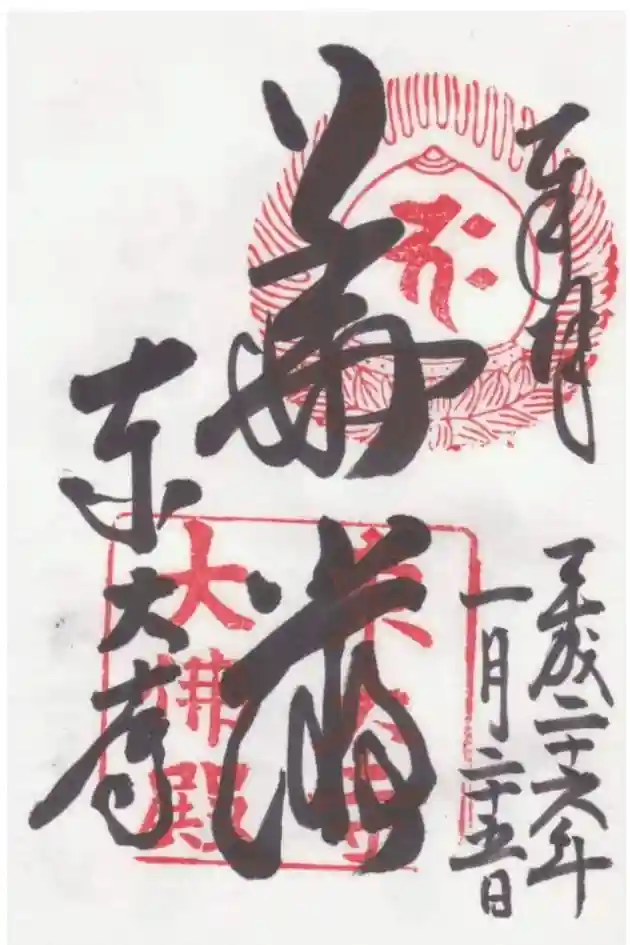 奉拝
平成二十六年
一月二十五日
華厳
東大寺
東大寺
大佛殿